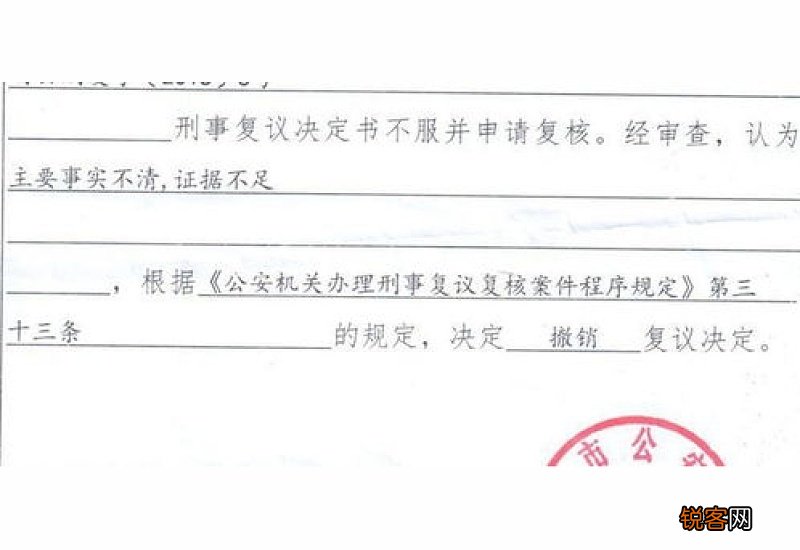 刑事复议决定书不服并申请复核。经审查，认为
主要事实不清,证据不足
，根据《公安机关办理刑事复议复核案件程序规定》第三
十三条的规定，决定撤销复议决定。
市公
锐客网